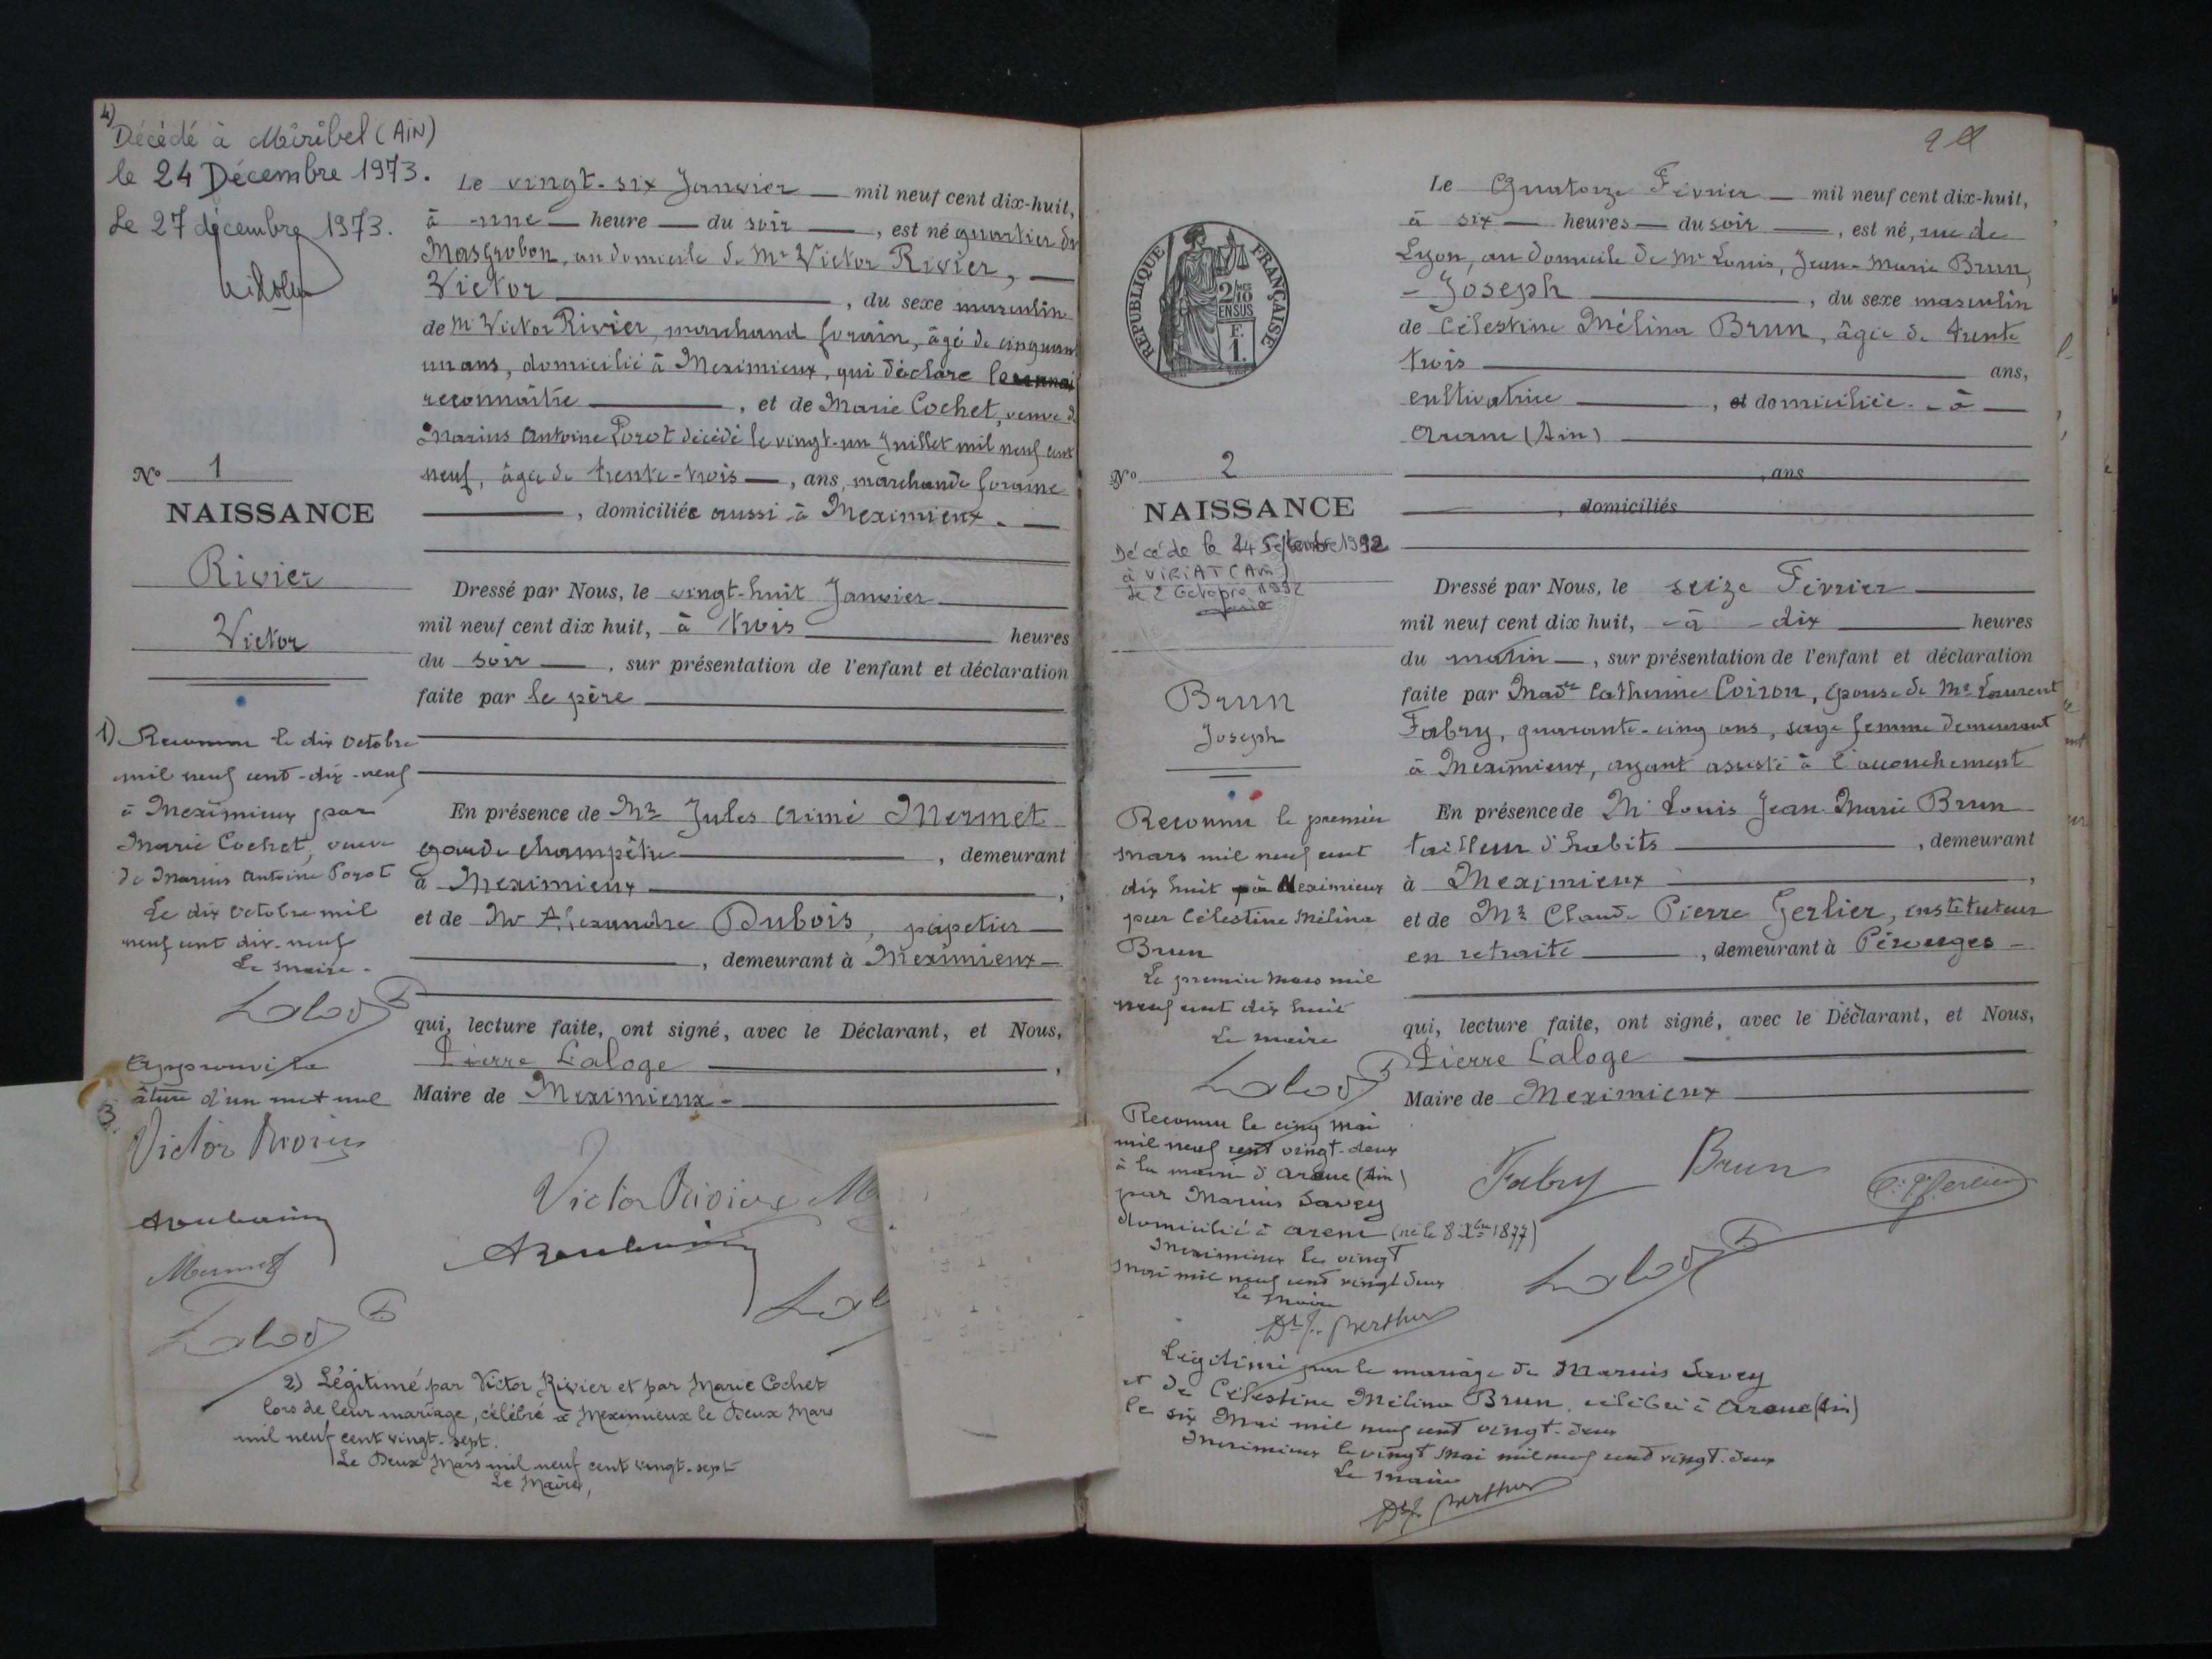 4)
Décédé à Miribel (AIN)
le 24 Décembre 1973.
Le 27 décembre 1973.
Le vingt-six Janvier mil neuf cent dix-huit,
à une heure du soir, est né quartier du
Masgrobon, au domicile de Mr Victor Rivier,
Victor, du sexe masculin
de Mr Victor Rivier, marchand forain, âgé de cinquante
un ans, domicilié à Meximieux, qui déclare le
reconnaître, et de Marie Cochet, veuve de
Marius Antoine Porot décédé le vingt-un Juillet mil neuf cent
neuf, âgée de trente-trois, ans, marchande foraine
, domiciliée aussi à Meximieux.
No 1
NAISSANCE
Rivier
Victor
Dressé par Nous, le vingt-huit Janvier
mil neuf cent dix huit, à trois heures
du soir, sur présentation de l'enfant et déclaration
faite par le père
En présence de Mr Jules Aimé Mermet
garde champêtre, demeurant
à Meximieux,
et de Mr Alexandre Dubois, papetier
, demeurant à Meximieux
qui, lecture faite, ont signé, avec le Déclarant, et Nous,
Pierre Laloge,
Maire de Meximieux
1) Reconnu le dix Octobre
mil neuf cent-dix-neuf
à Meximieux par
Marie Cochet, veuve
de Marius Antoine Porot
Le dix Octobre mil
neuf cent dix-neuf
Le Maire
Approuvé la
âture d'un mot nul
3
Victor Rivier
Mermet
Victor Rivier
2) Légitimé par Victor Rivier et par Marie Cochet
lors de leur mariage, célébré à Meximieux le Deux Mars
mil neuf cent vingt-sept.
Le Deux Mars mil neuf cent vingt-sept
Le Maire,
RÉPUBLIQUE FRANÇAISE
2/10
EN SUS
F.
1.
Le Quatorze Février mil neuf cent dix-huit,
à six heures du soir, est né, rue de
Lyon, au domicile de Mr Louis, Jean-Marie Brun,
Joseph, du sexe masculin
de Célestine Mélina Brun, âgée de trente
trois ans,
cultivatrice, et domiciliée à
Aranc (Ain)
, ans
, domiciliés
No 2
NAISSANCE
Décédé le 24 Septembre 1992
à VIRIAT (Ain)
le 2 Octobre 1992
Brun
Joseph
Dressé par Nous, le seize Février
mil neuf cent dix huit, à dix heures
du matin, sur présentation de l'enfant et déclaration
faite par Made Catherine Coiron, épouse de Mr Laurent
Fabry, quarante-cinq ans, sage femme demeurant
à Meximieux, ayant assisté à l'accouchement
En présence de Mr Louis Jean Marie Brun
tailleur d'habits, demeurant
à Meximieux,
et de Mr Claude Pierre Gerlier, instituteur
en retraite, demeurant à Pérouges
qui, lecture faite, ont signé, avec le Déclarant, et Nous,
Pierre Laloge
Maire de Meximieux
Reconnu le premier
Mars mil neuf cent
dix huit à Meximieux
par Célestine Mélina
Brun
Le premier Mars mil
neuf cent dix huit
Le maire
Reconnu le cinq Mai
mil neuf cent vingt-deux
à la mairie d'Aranc (Ain)
par Marius Savey
domicilié à Aranc (né le 8 Xbre 1877)
Meximieux le vingt
Mai mil neuf cent vingt deux
Le Maire
Dr J. Berthier
Fabry Brun
Légitimé par le mariage de Marius Savey
et de Célestine Mélina Brun, célébré à Aranc (Ain)
le six Mai mil neuf cent vingt-deux
Meximieux le vingt Mai mil neuf cent vingt-deux
Le Maire
Dr J. Berthier